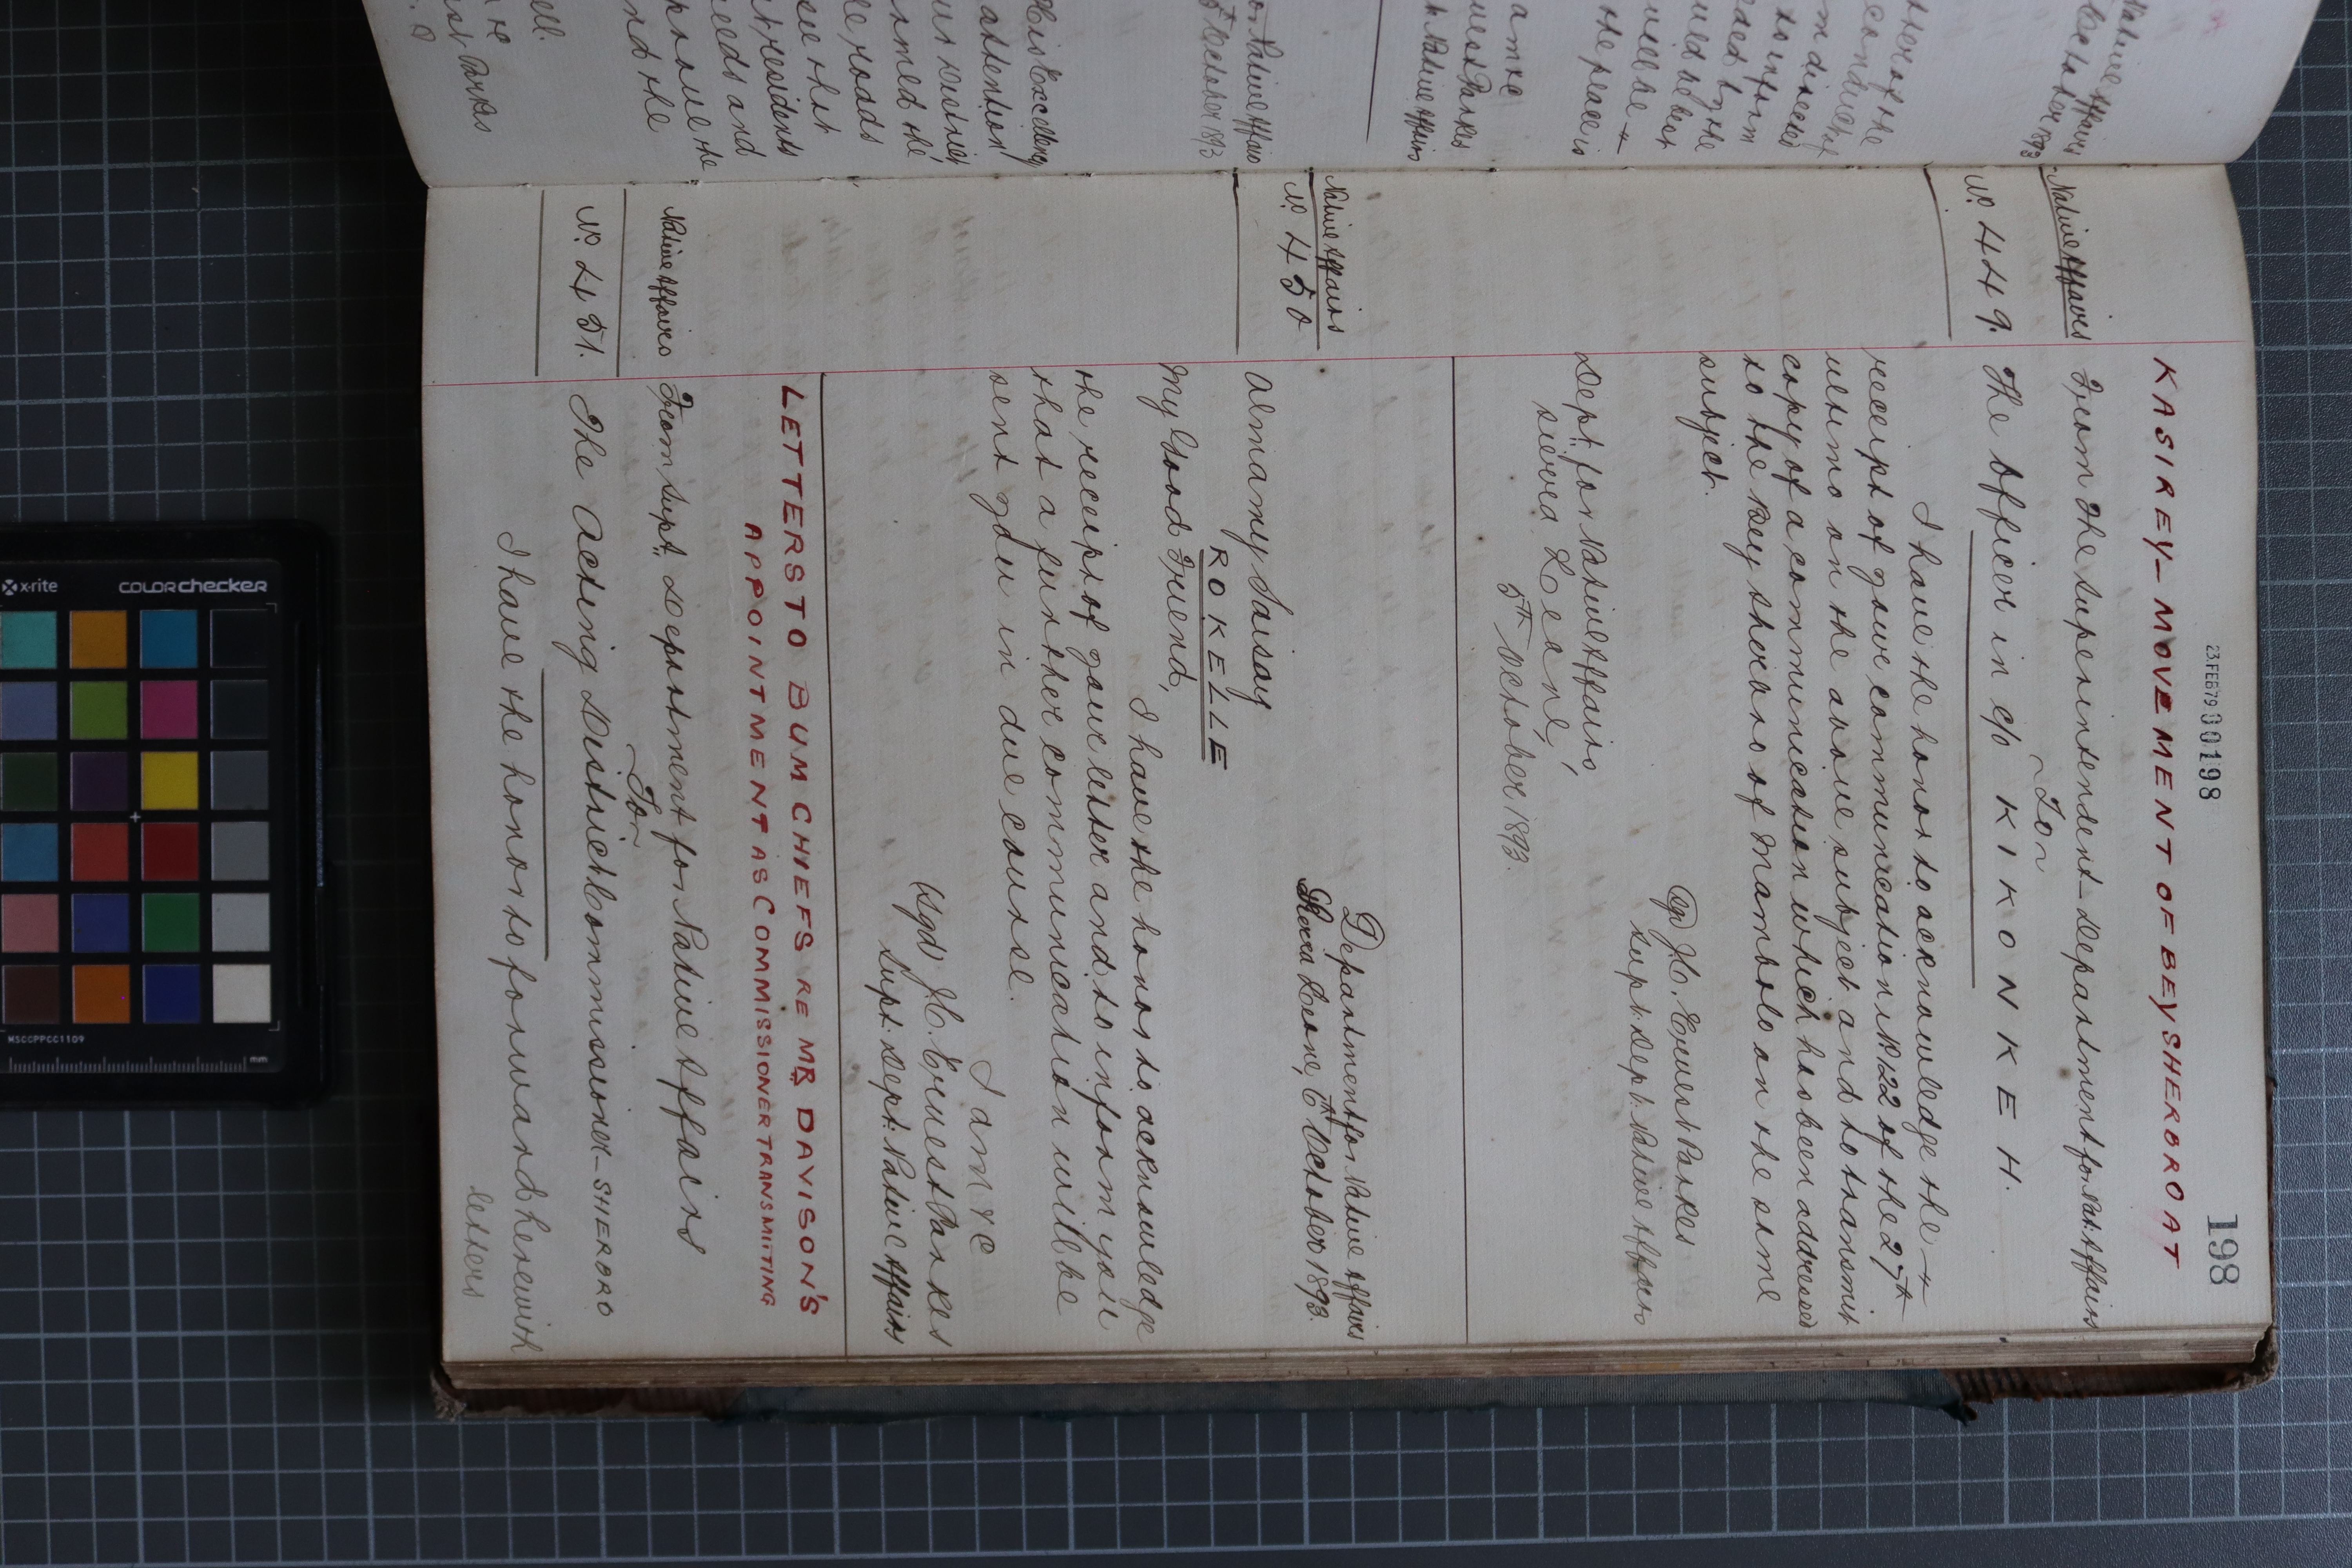 23 FEB 79 00198
198
KASIREY – MOVEMENT OF BEY SHERBRO AT
Native Affairs
From the Superintendent Department for Nat. Affairs
To
Nº 449.
The Officer in c/o KIKONKEH.
I have the honor to acknowledge the
receipt of your communication Nº 122 of the 27th
ultimo on the above subject and to transmit
copy of a communication which has been addressed
to the Bey Sherbro of Mambolo on the same
subject.
J. C. Ernest Parkes
Supt. Dept. Native Affairs
Dept. for Native Affairs,
Sierra Leone,
5th October 1893.
Native Affairs
Nº 450
Department for Native Affairs
Sierra Leone, 6th October 1893.
Almamy Saisay
ROKELLE
My Good Friend,
I have the honor to acknowledge
the receipt of your letter and to inform you
that a further communication will be
sent you in due course.
I am &c
(Sgd) J. C. Ernest Parkes
Supt. Dept. Native Affairs
LETTERS TO BUM CHIEFS RE MR DAVISON'S
APPOINTMENT AS COMMISSIONER TRANSMITTING
Native Affairs
From Supt. Department for Native Affairs
To
Nº 451.
The Acting District Commissioner – SHERBRO
I have the honor to forward herewith
letters
Native Affairs
October 1893
to inform
will be
the peace is
Native Affairs
October 1893
His Excellency
attention
roads
residents
and
the
x-rite
COLORchecker
MSCCPPCC1109
mm